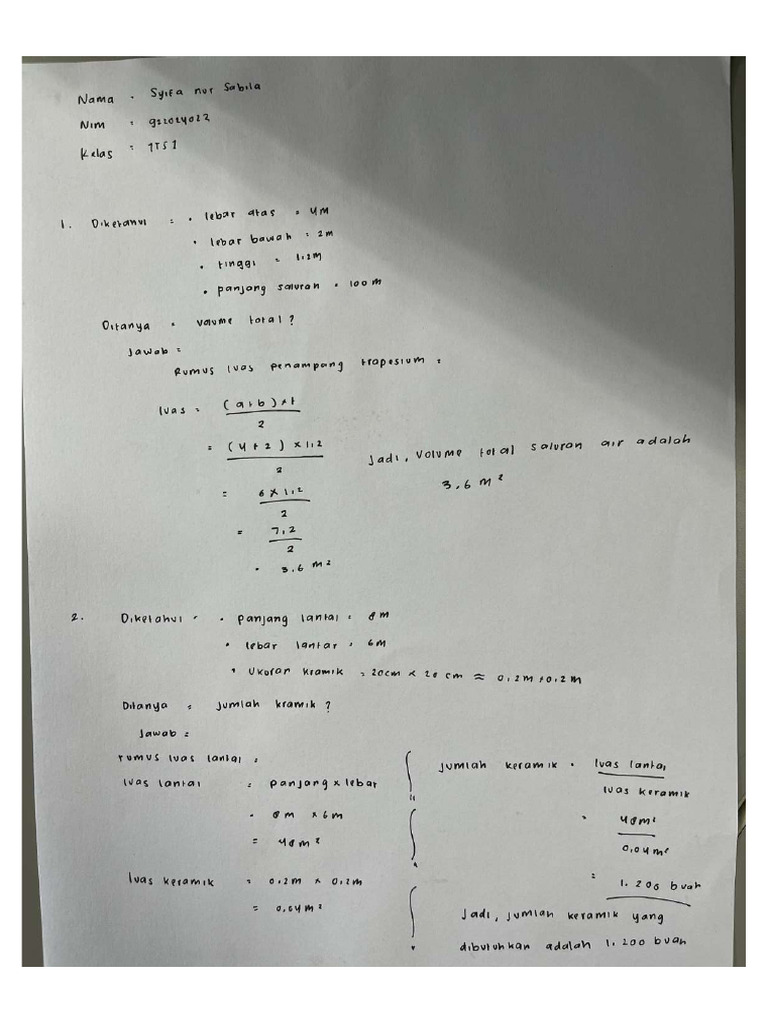 Nama : Syifa nur Sabila
Nim : 922024022
Kelas : 1TS1
1. Diketahui = • lebar atas = 4m
• lebar bawah = 2m
• tinggi = 1,2m
• panjang saluran = 100m
Ditanya = Volume total?
Jawab =
Rumus luas penampang trapesium =
luas = (a+b) × t
2
= (4+2) × 1,2
2
= 6 × 1,2
2
= 7,2
2
= 3,6 m²
Jadi, Volume total saluran air adalah
3,6 m²
2. Diketahui = • panjang lantai = 8m
• lebar lantai = 6m
• Ukuran kramik = 20cm × 20cm ≈ 0,2m × 0,2m
Ditanya = jumlah kramik?
Jawab =
rumus luas lantai =
luas lantai = panjang × lebar
= 8m × 6m
= 48m²
luas keramik = 0,2m × 0,2m
= 0,04m²
Jumlah keramik = luas lantai
luas keramik
= 48m²
0,04m²
= 1.200 buah
Jadi, jumlah keramik yang
dibutuhkan adalah 1.200 buah